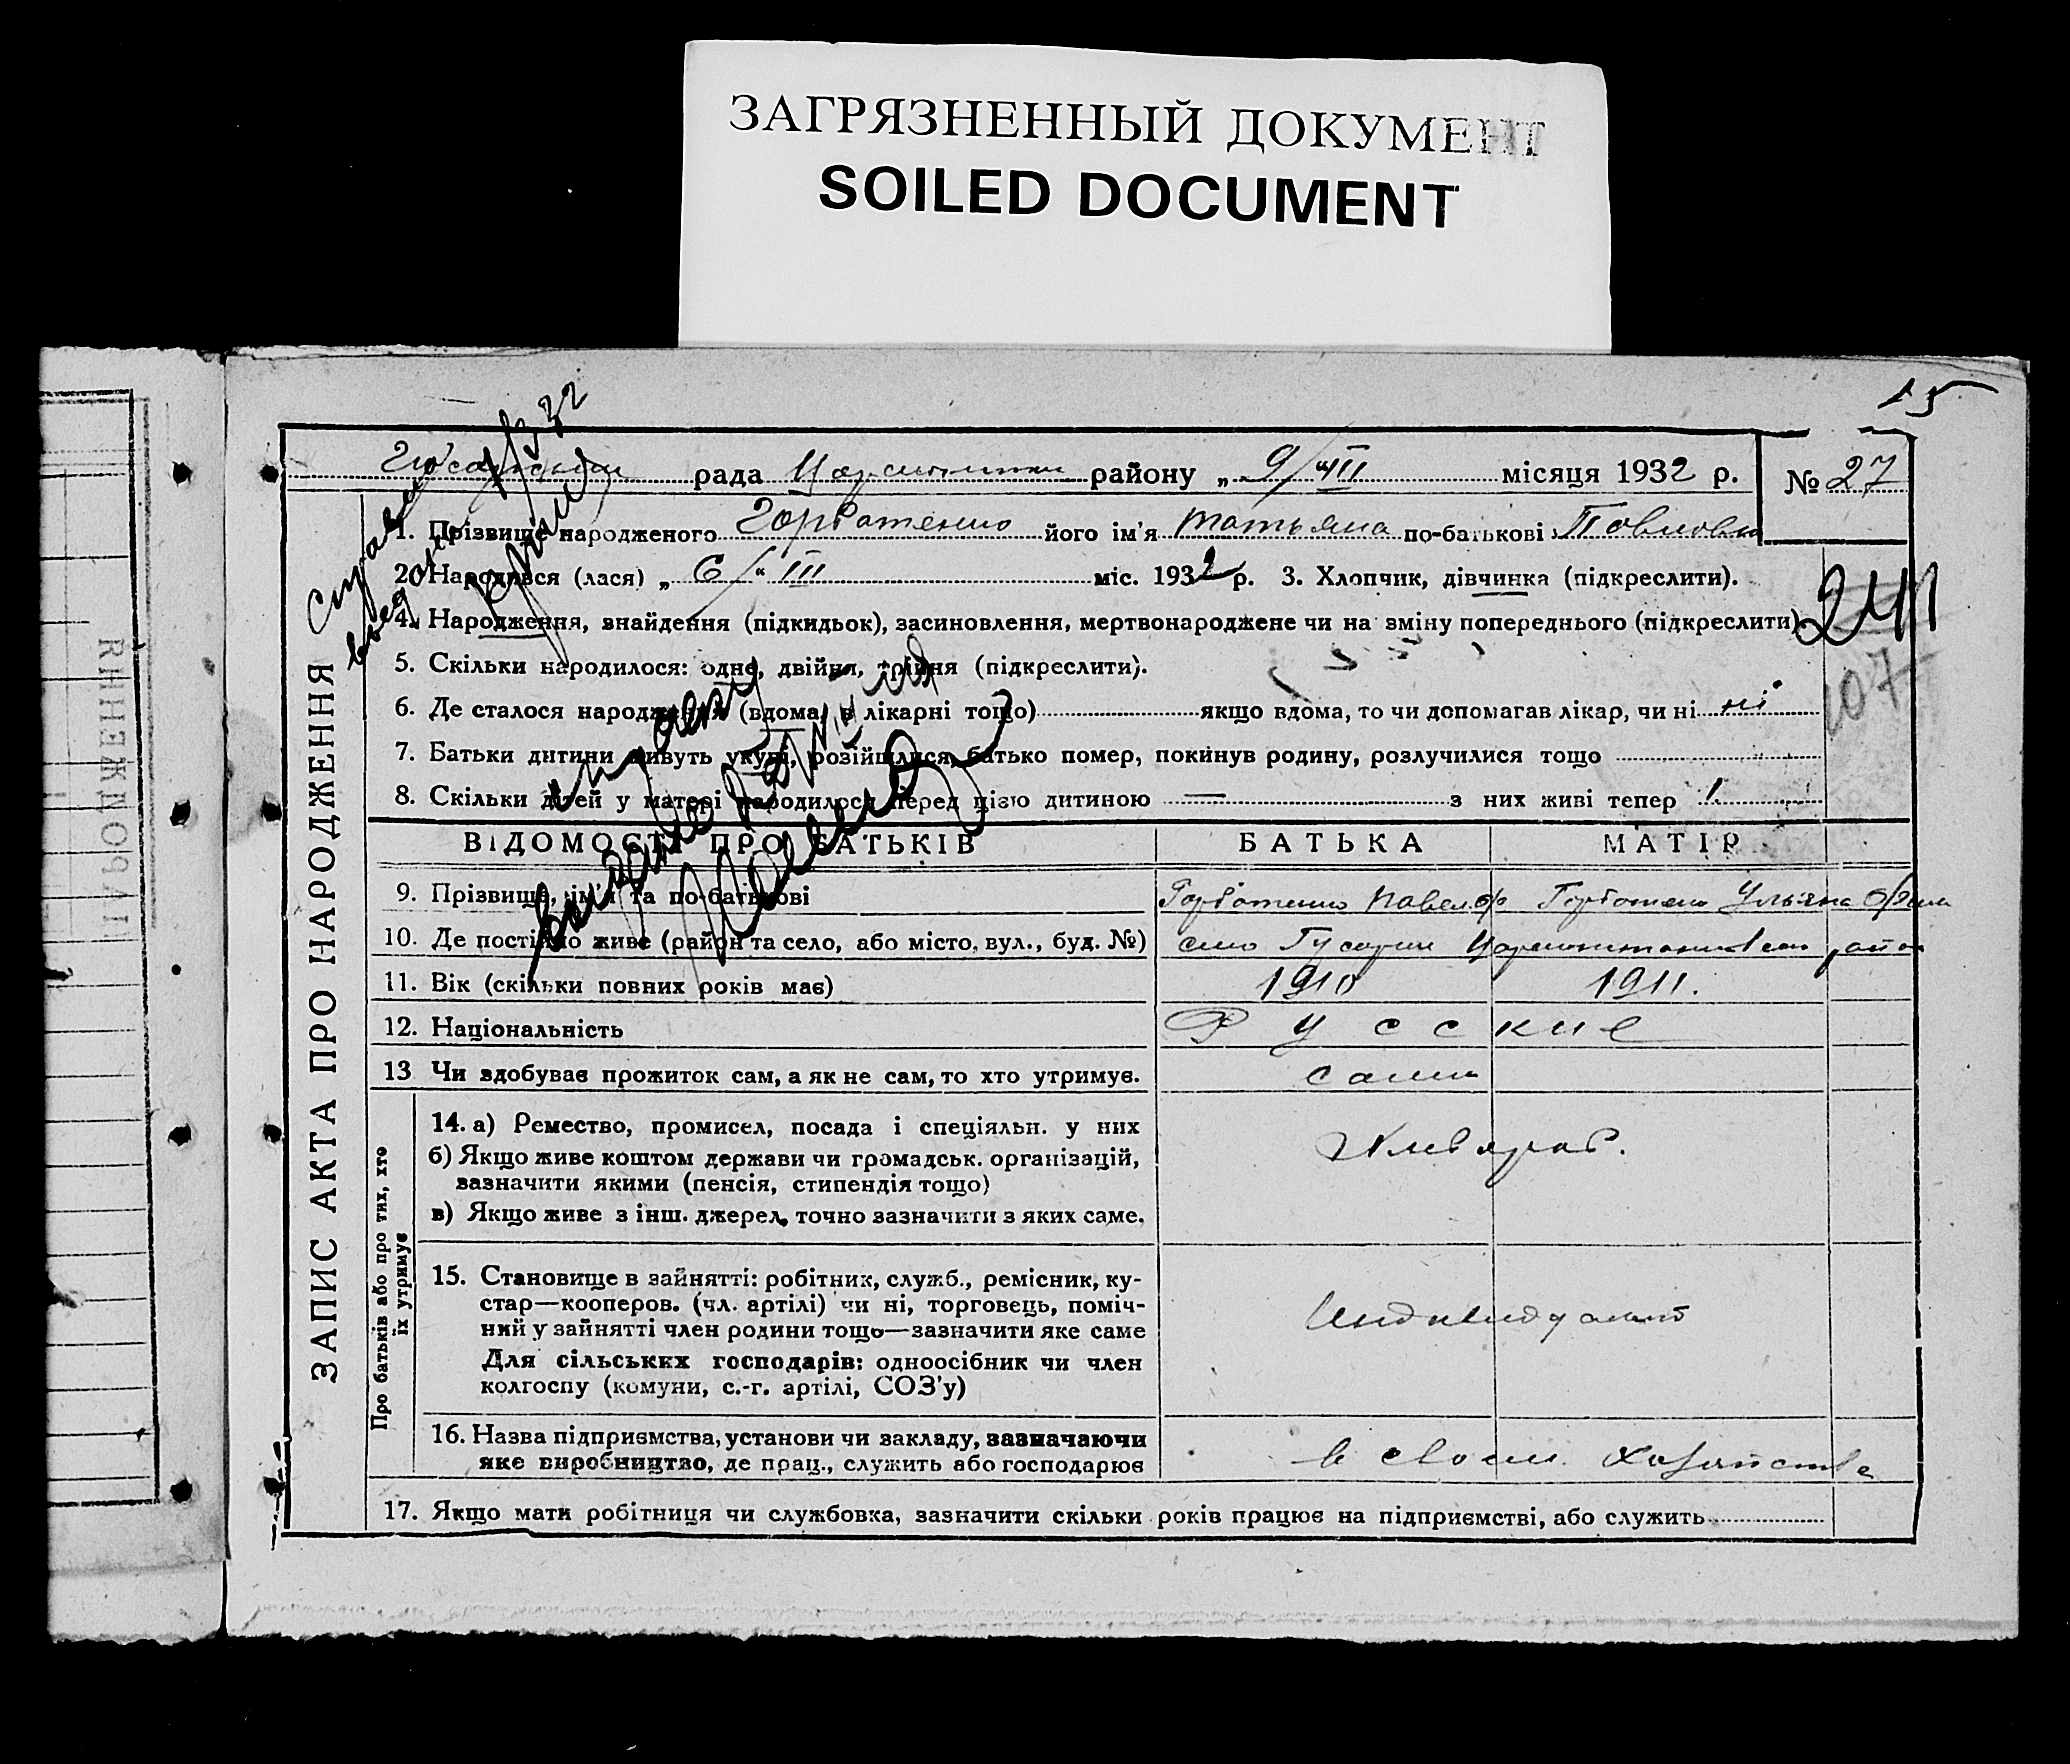 ЗАГРЯЗНЕННЫЙ ДОКУМЕНТ
SOILED DOCUMENT
15
рада района „ 9/III місяця 1932 р. № 27
1. Прізвище народженого Горбатенко його ім'я Татьяна по-батькові Повловна
2. Народився (лася) „ 6/“ III міс. 1932 р. 3. Хлопчик, дівчинка (підкреслити).
4. Народження, знайдення (підкидьок), засиновлення, мертвонароджене чи на зміну попереднього (підкреслити).
241
5. Скільки народилося: одне, двійня, трійня (підкреслити).
6. Де сталося народження (вдома, в лікарні тощо) якщо вдома, то чи допомагав лікар, чи ні ні
107
7. Батьки дитини живуть укупі, розійшлися, батько помер, покинув родину, розлучилися тощо
8. Скільки дітей у матері народилося перед цією дитиною — з них живі тепер 1
ВІДОМОСТІ ПРО БАТЬКІВ БАТЬКА МАТІР
9. Прізвище, ім'я та по-батькові Горбатенко Павел Горбатенко Ульяна
10. Де постійно живе (район та село, або місто, вул., буд. №) село
11. Вік (скільки повних років має) 1910 1911.
12. Національність Русские
13 Чи здобуває прожиток сам, а як не сам, то хто утримує. сами
14. а) Ремество, промисел, посада і спеціяльн. у них
б) Якщо живе коштом держави чи громадськ. організацій,
зазначити якими (пенсія, стипендія тощо)
в) Якщо живе з інш. джерел, точно зазначити з яких саме.
Хлебороб.
15. Становище в зайнятті: робітник, служб., ремісник, ку-
стар—кооперов. (чл. артілі) чи ні, торговець, поміч-
ний у зайнятті член родини тощо—зазначити яке саме
Для сільських господарів: одноосібник чи член
колгоспу (комуни, с.-г. артілі, СОЗ'у)
16. Назва підприємства, установи чи закладу, зазначаючи
яке виробництво, де прац., служить або господарює
в своем хозяйстве
17. Якщо мати робітниця чи службовка, зазначити скільки років працює на підприємстві, або служить
ЗАПИС АКТА ПРО НАРОДЖЕННЯ
Про батьків або про тих, хто
їх утримує
НАРОДЖЕННЯ